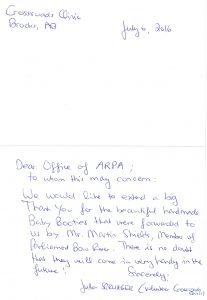 Crossroads Clinic
Brooks, AB
July 6, 2016
Dear Office of ARPA;
to whom this may concern:
We would like to extend a big
Thank You for the beautiful handmade
Baby Booties that were forwarded to
us by Mr. Martin Shields, Member of
Parliament Bow River. There is no doubt
that they will come in very handy in the
future! Sincerely,
Julia